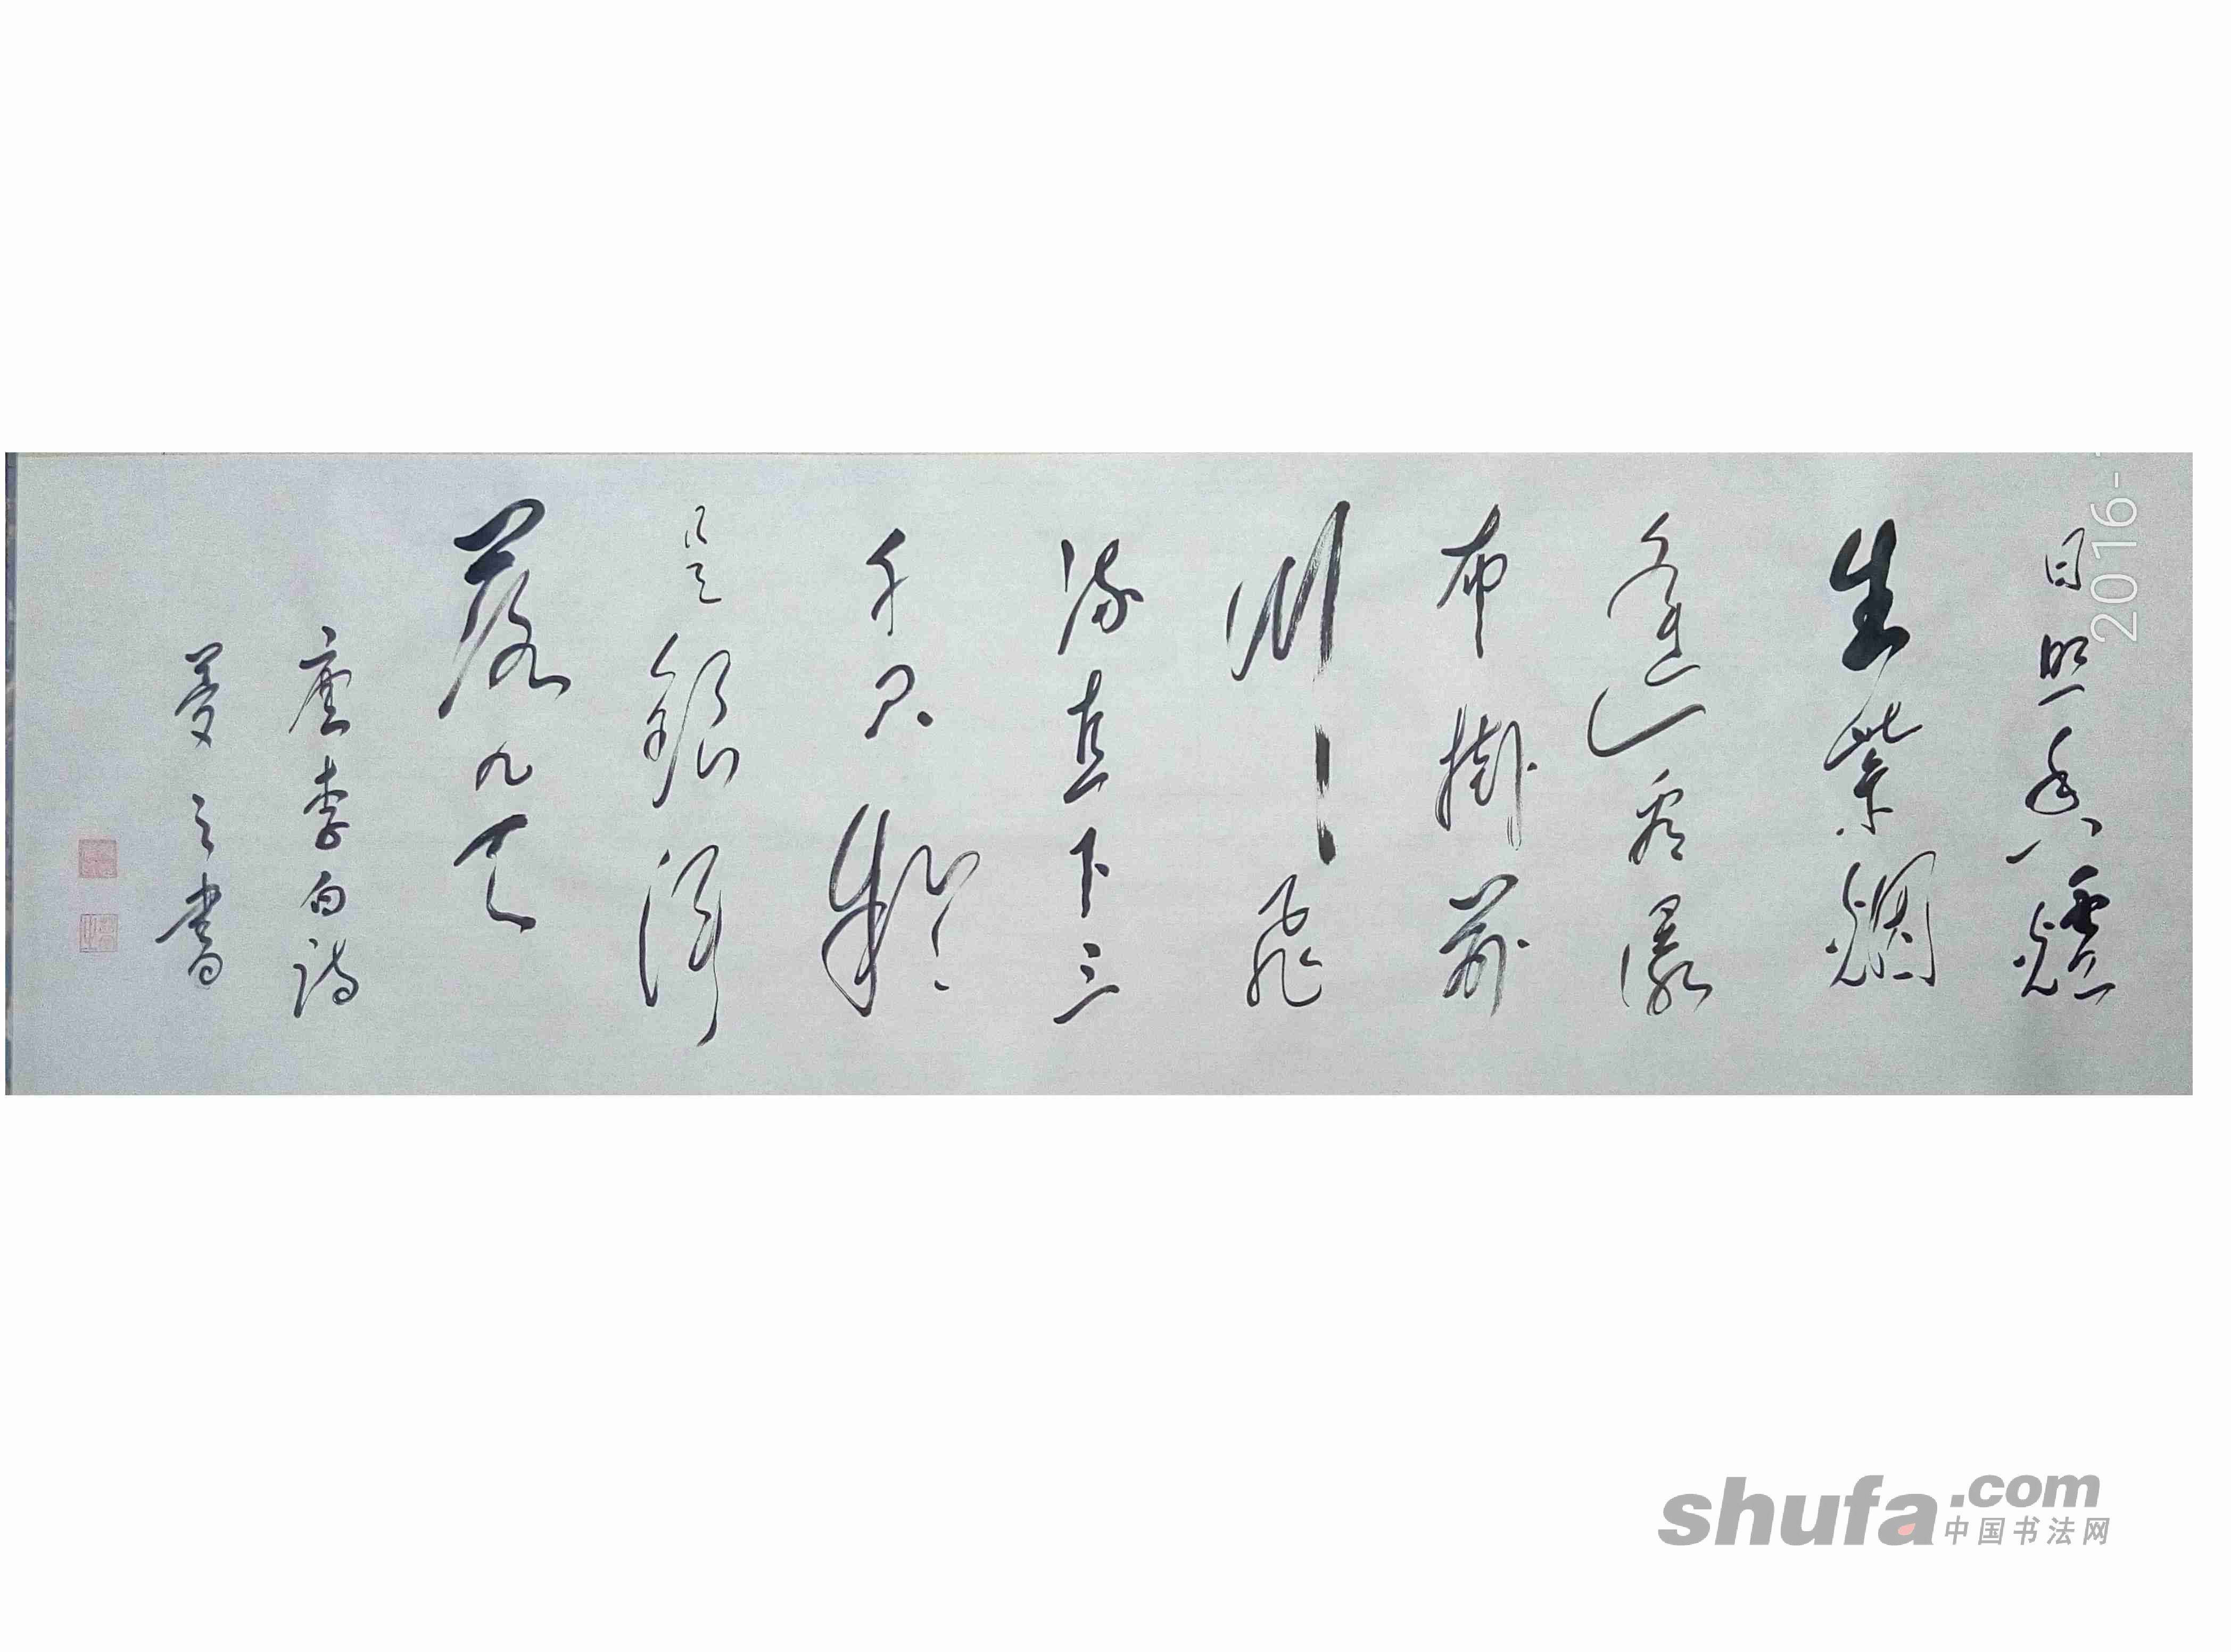 日照香爐
生紫烟
遙看瀑
布掛前
川飛
流直下三
千尺疑
是銀河
落九天
唐李白詩
之書
2016-
shufa.com
中国书法网